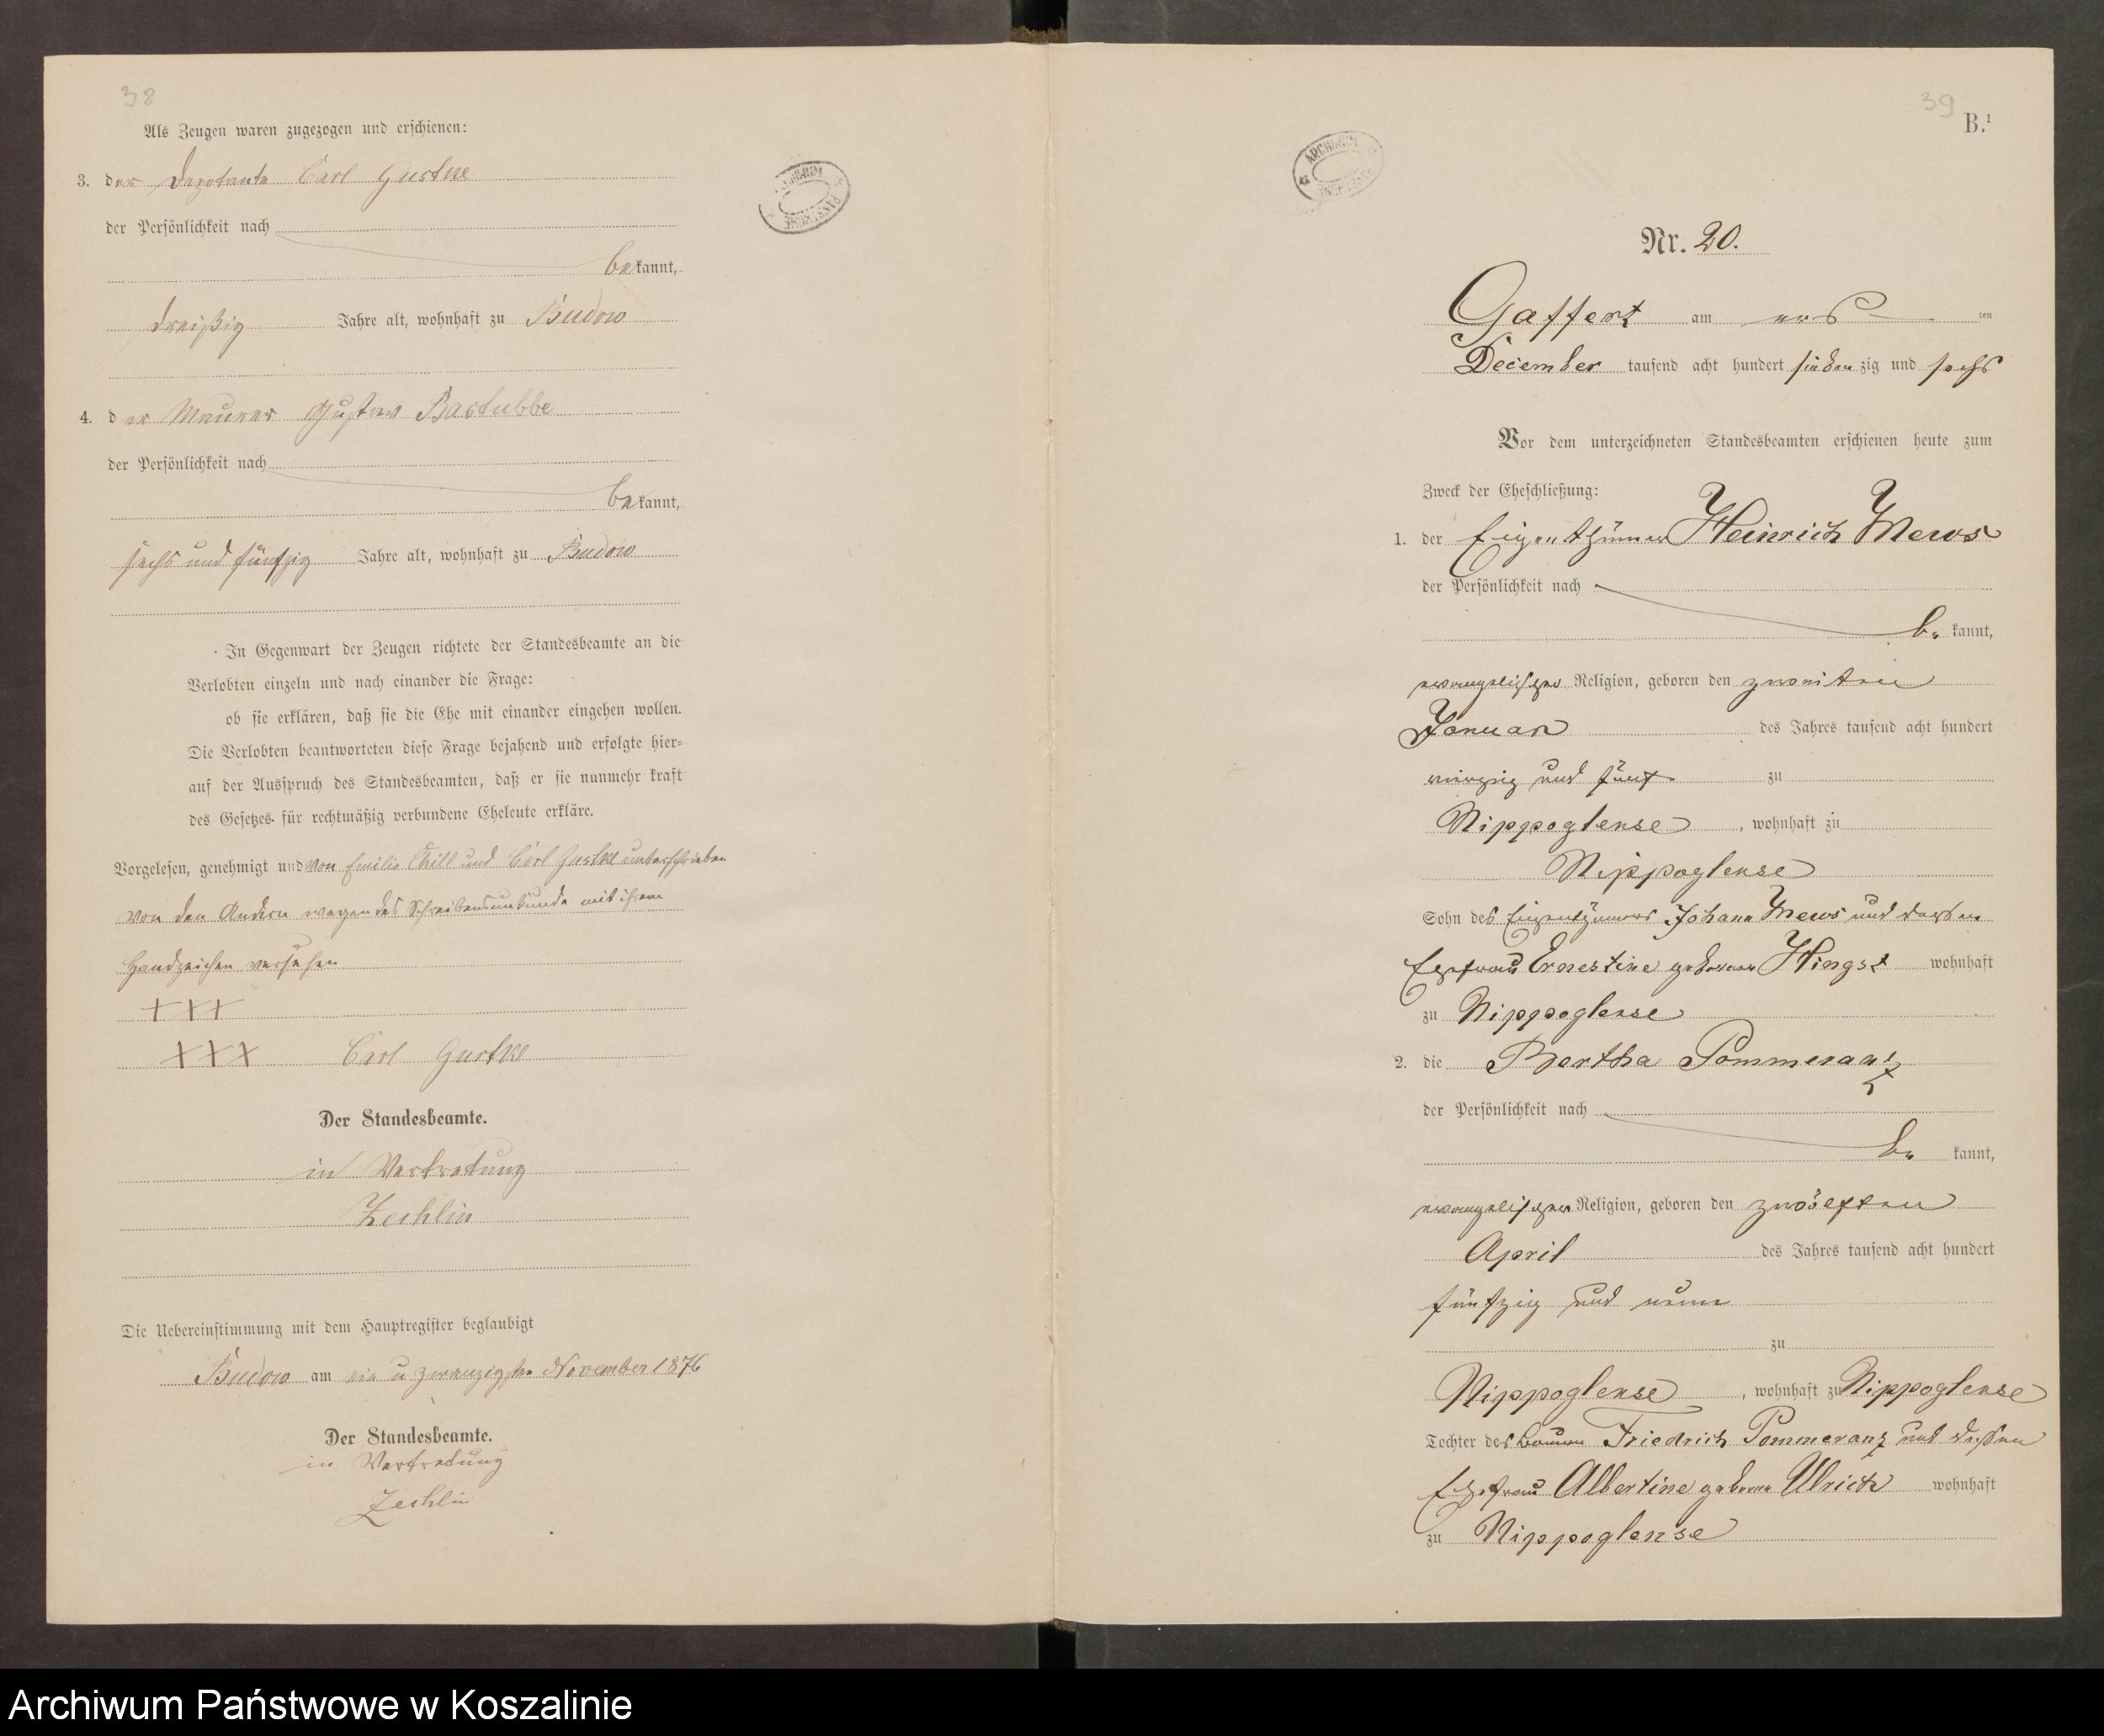 38
Als Zeugen waren zugezogen und erschienen:
3. der Deputante Carl Gustke
der Persönlichkeit nach
bekannt,
dreißig Jahre alt, wohnhaft zu Budow
4. der Maurer Gustav Bastubbe
der Persönlichkeit nach
bekannt,
sechs und fünfzig Jahre alt, wohnhaft zu Budow
In Gegenwart der Zeugen richtete der Standesbeamte an die
Verlobten einzeln und nach einander die Frage:
ob sie erklären, daß sie die Ehe mit einander eingehen wollen.
Die Verlobten beantworteten diese Frage bejahend und erfolgte hier-
auf der Ausspruch des Standesbeamten, daß er sie nunmehr kraft
des Gesetzes für rechtmäßig verbundene Eheleute erkläre.
Vorgelesen, genehmigt und von Emilie und Carl Gustke unterschrieben
von den Andern wegen des Schreibensunkunde mit ihrem
Handzeichen versehen
+++
+++ Carl Gustke
Der Standesbeamte.
in Vertretung
Zechlin
Die Uebereinstimmung mit dem Hauptregister beglaubigt
Budow am ein u zwanzigsten November 1876
Der Standesbeamte.
in Vertretung
Zechlin
ARCHIWUM PAŃSTWOWE
39
B.¹
ARCHIWUM PAŃSTWOWE
Nr. 20.
Gaffert am ersten
December tausend acht hundert siebenzig und sechs
Vor dem unterzeichneten Standesbeamten erschienen heute zum
Zweck der Eheschließung:
1. der Eigenthümer Heinrich Mews
der Persönlichkeit nach
bekannt,
evangelischer Religion, geboren den zweiten
Januar des Jahres tausend acht hundert
vierzig und fünf zu
Nippoglense, wohnhaft zu
Nippoglense
Sohn des Eigenthümers Johann Mews und dessen
Ehefrau Ernestine geborene Hingst wohnhaft
zu Nippoglense
2. die Bertha Pommeranz
der Persönlichkeit nach
bekannt,
evangelischer Religion, geboren den zwölften
April des Jahres tausend acht hundert
fünfzig und neun
zu
Nippoglense, wohnhaft zu Nippoglense
Tochter des Bauern Friedrich Pommeranz und dessen
Ehefrau Albertine geborene Ulrich wohnhaft
zu Nippoglense
Archiwum Państwowe w Koszalinie